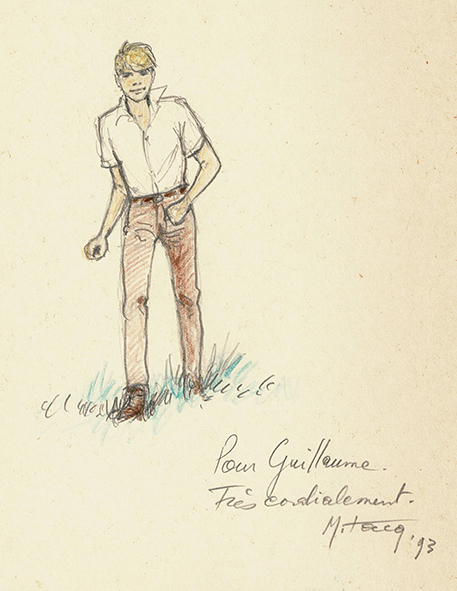 Pour Guillaume.
Très cordialement.
MiTacq. '93